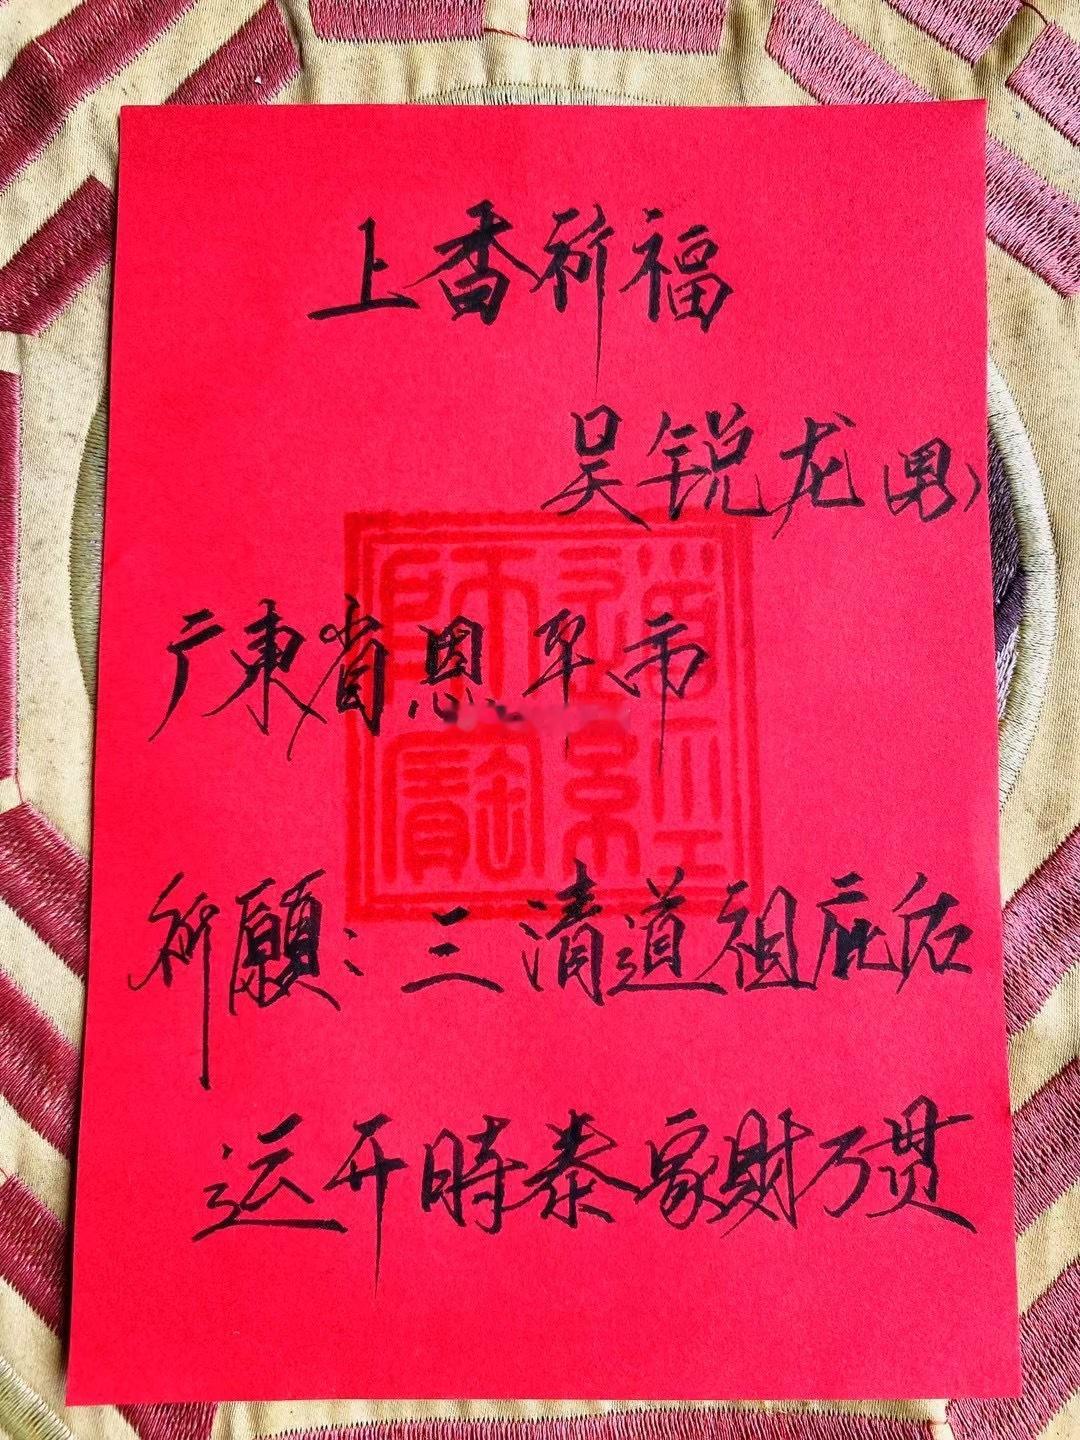 上香祈福
吴锐龙(男)
广東省恩平市
祈願:三清道祖庇佑
运开時泰家財万贯
道經師寶